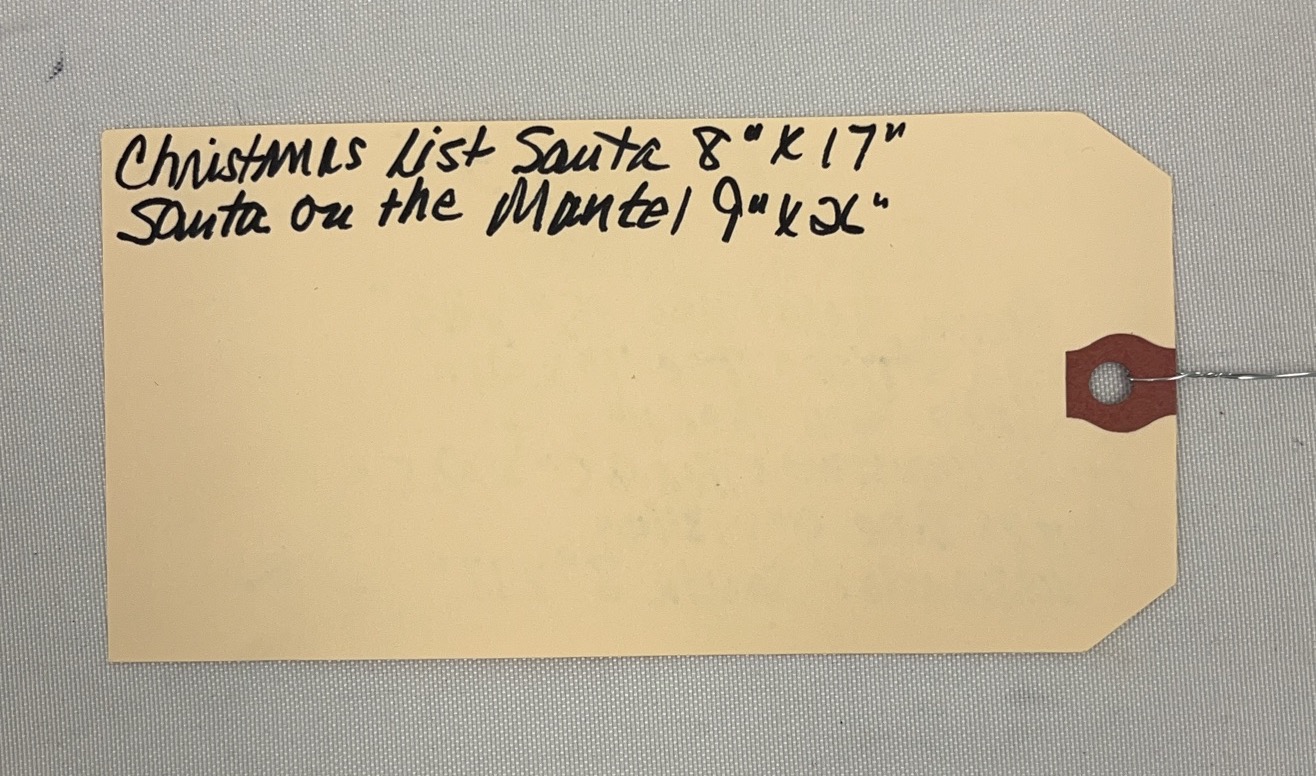 Christmas List Santa 8" x 17"
Santa on the Mantel 9" x 26"